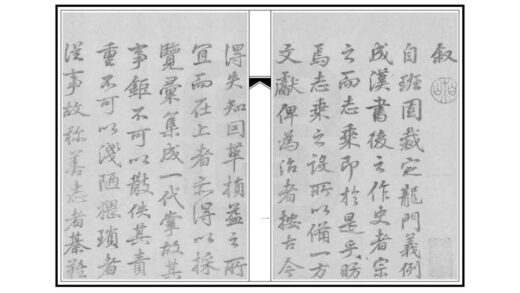 敘
自班固裁定龍門義例
成漢書後之作史者宗
之而志乘即於是乎昉
焉志乘之設所以備一方
文獻俾為治者按古今
一
得失知因革損益之所
宜而在上者亦得以採
覽彙集成一代掌故其
事鉅不可以散佚其責
重不可以淺陋猥瑣者
從事故称善志者綦難